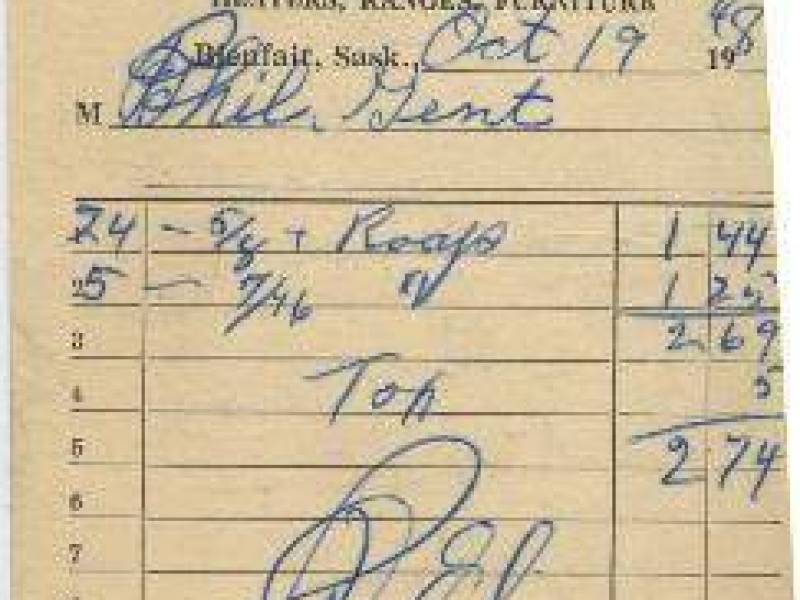 HEATERS, RANGES, FURNITURE
Bienfair, Sask., Oct 19 1948
M Phil. Gent
24 - 5/8 + Roaps 1 44
25 - 7/16 " 1 25
3 2 69
4 Tax 5
5 2 74
6
7